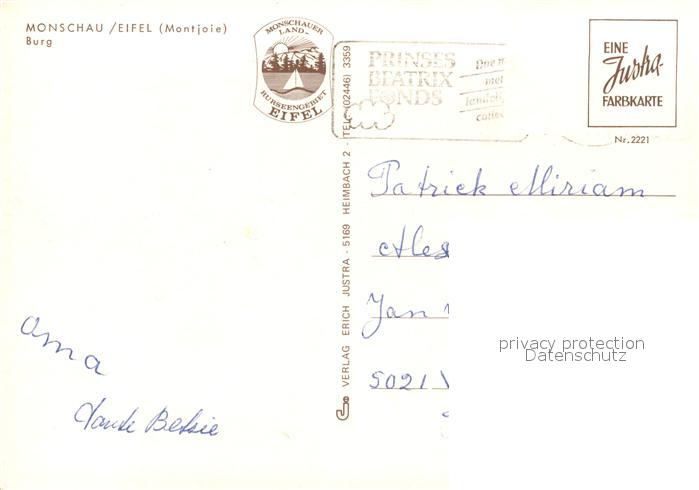 MONSCHAU /EIFEL (Montjoie)
Burg
MONSCHAUER
LAND-
RURSEENGEBIET
EIFEL
PRINSES
BEATRIX
FONDS
Doe m
met
landel
collec
EINE
Justra-
FARBKARTE
Nr. 2221
VERLAG ERICH JUSTRA - 5169 HEIMBACH 2 - TEL. (02446) 3359
Patrick Miriam
Ales
Jan
5021
oma
tante Betsie
privacy protection
Datenschutz